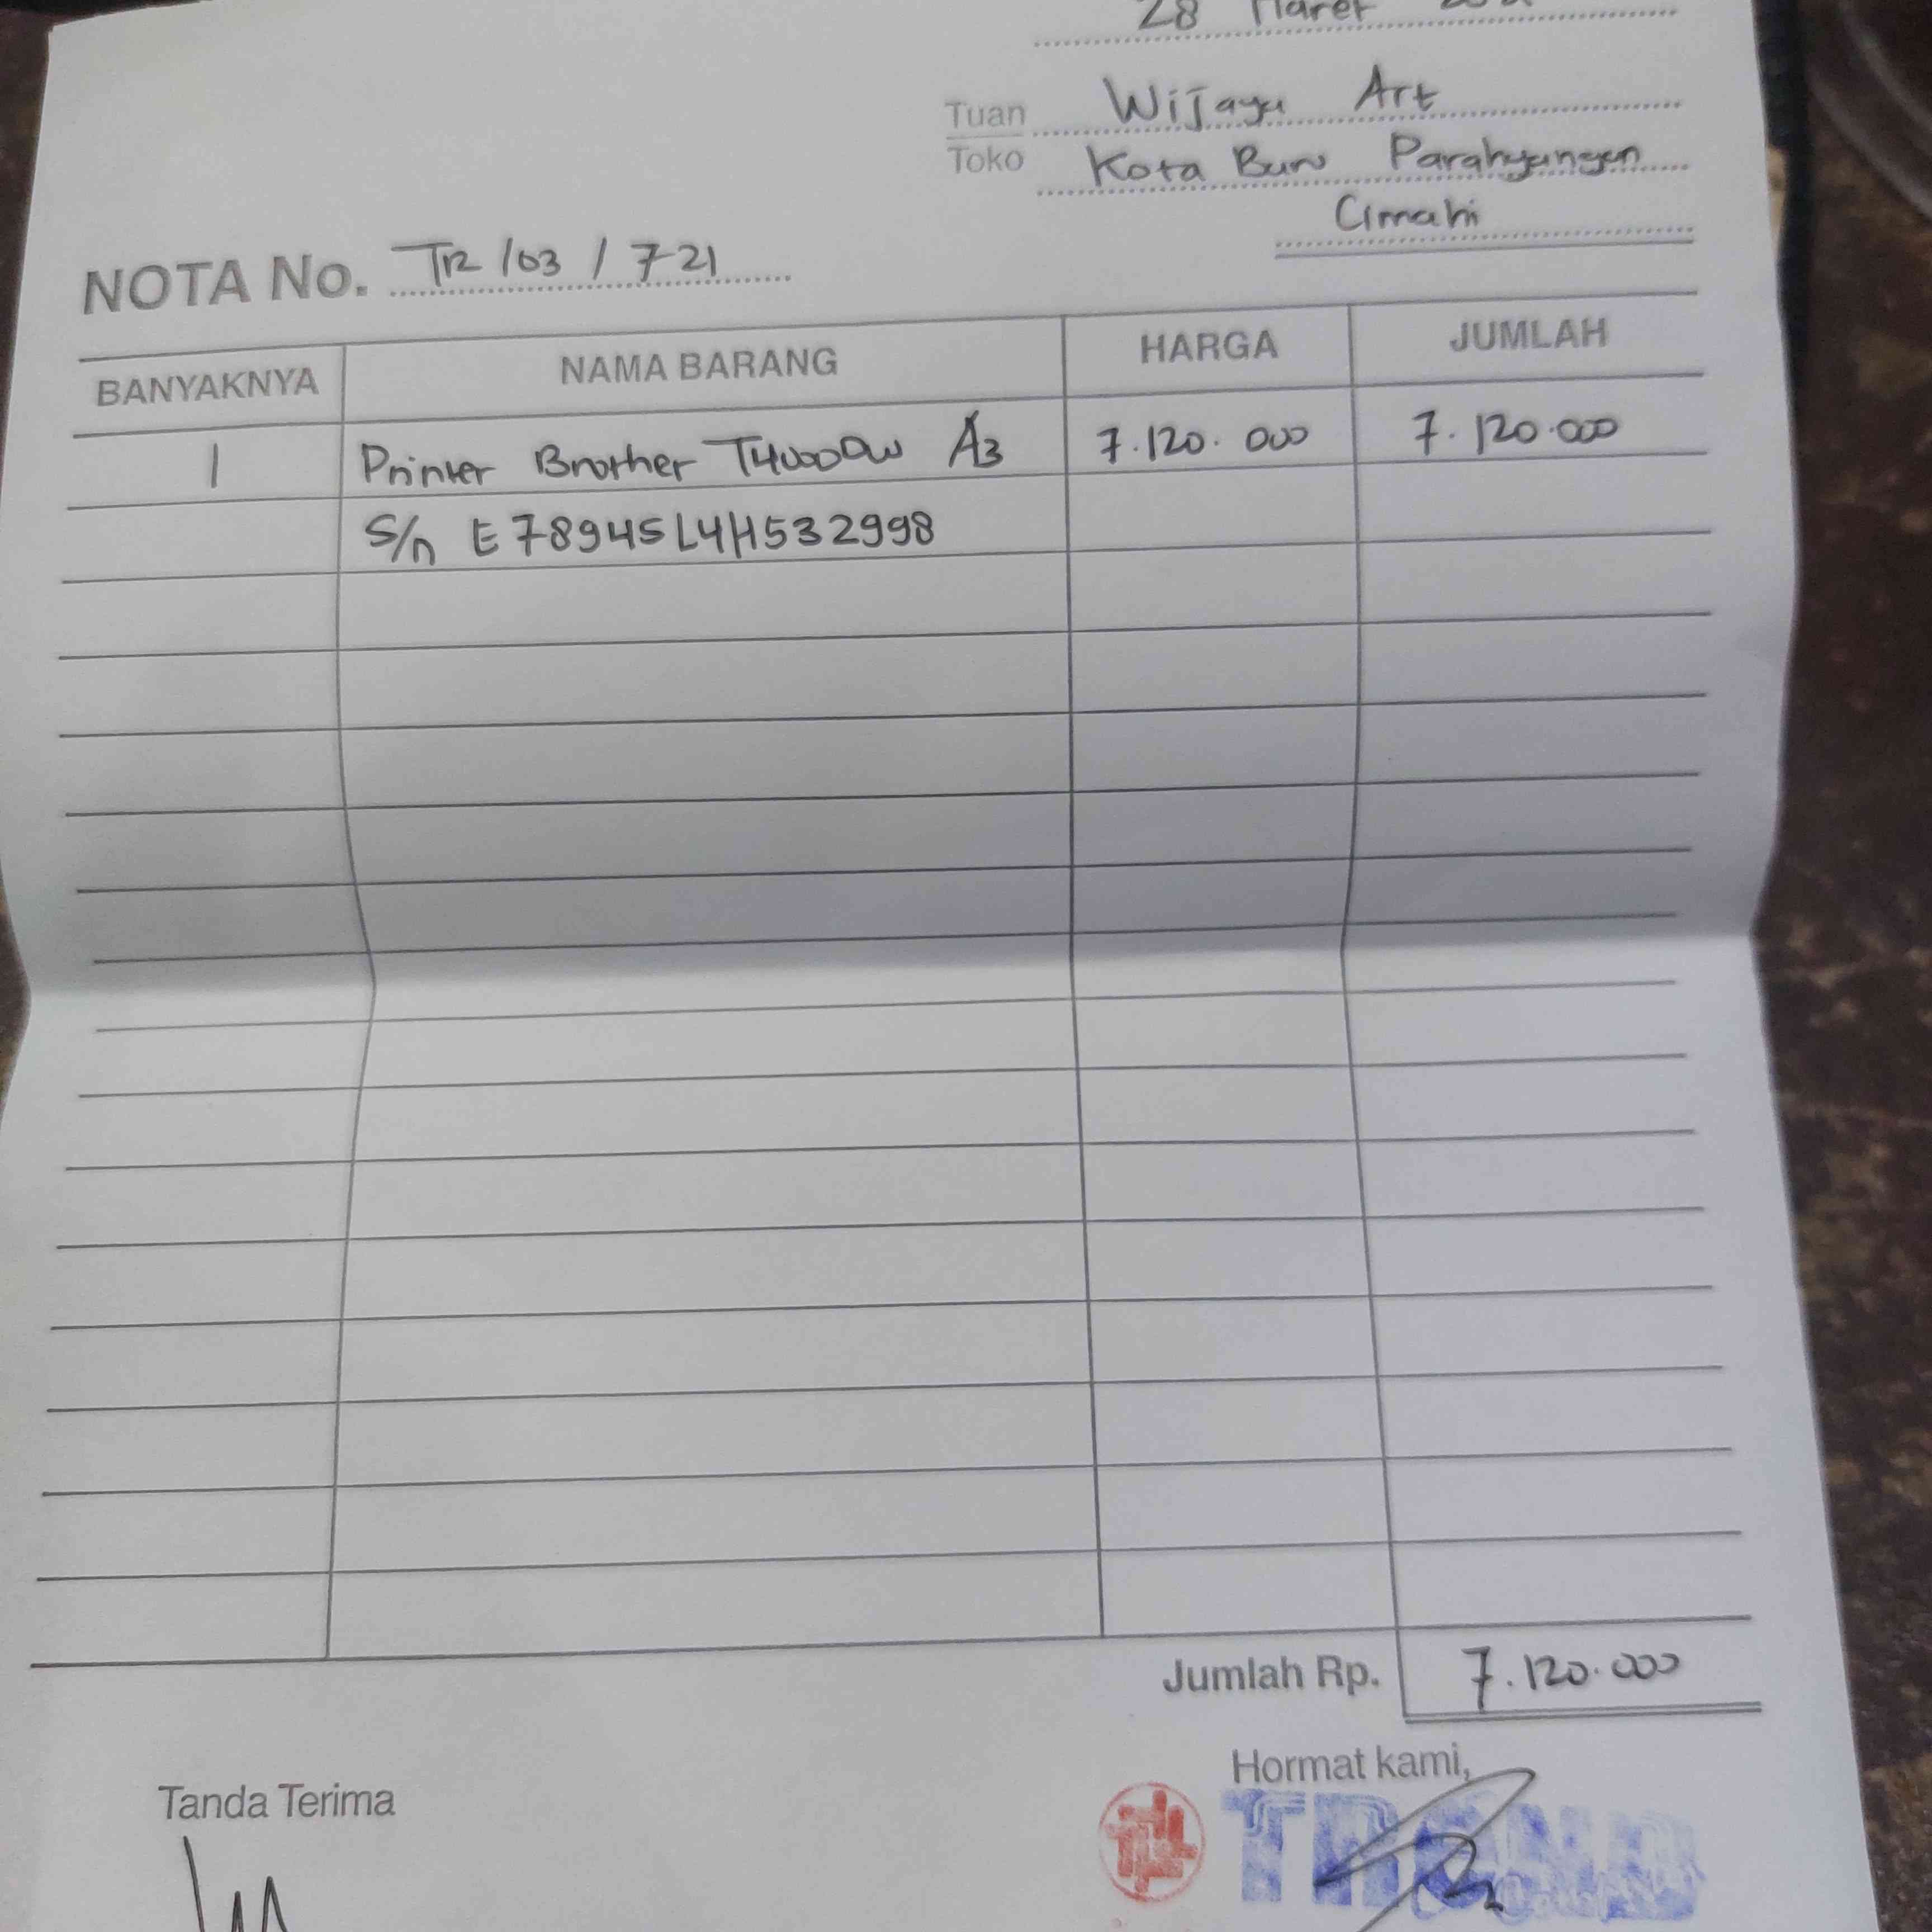 28 Maret
Tuan Wijaya Art
Toko Kota Baru Parahyangan
Cimahi
NOTA No. TR/03/721
BANYAKNYA NAMA BARANG HARGA JUMLAH
1 Printer Brother T4000DW A3 7.120.000 7.120.000
S/n E78945L4H532998
Jumlah Rp. 7.120.000
Tanda Terima Hormat kami,